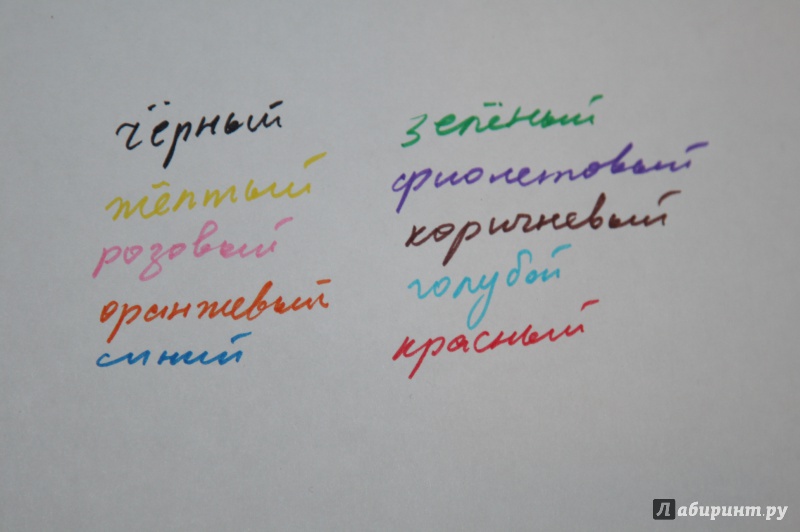 чёрный
жёлтый
розовый
оранжевый
синий
зелёный
фиолетовый
коричневый
голубой
красный
Лабиринт.ру